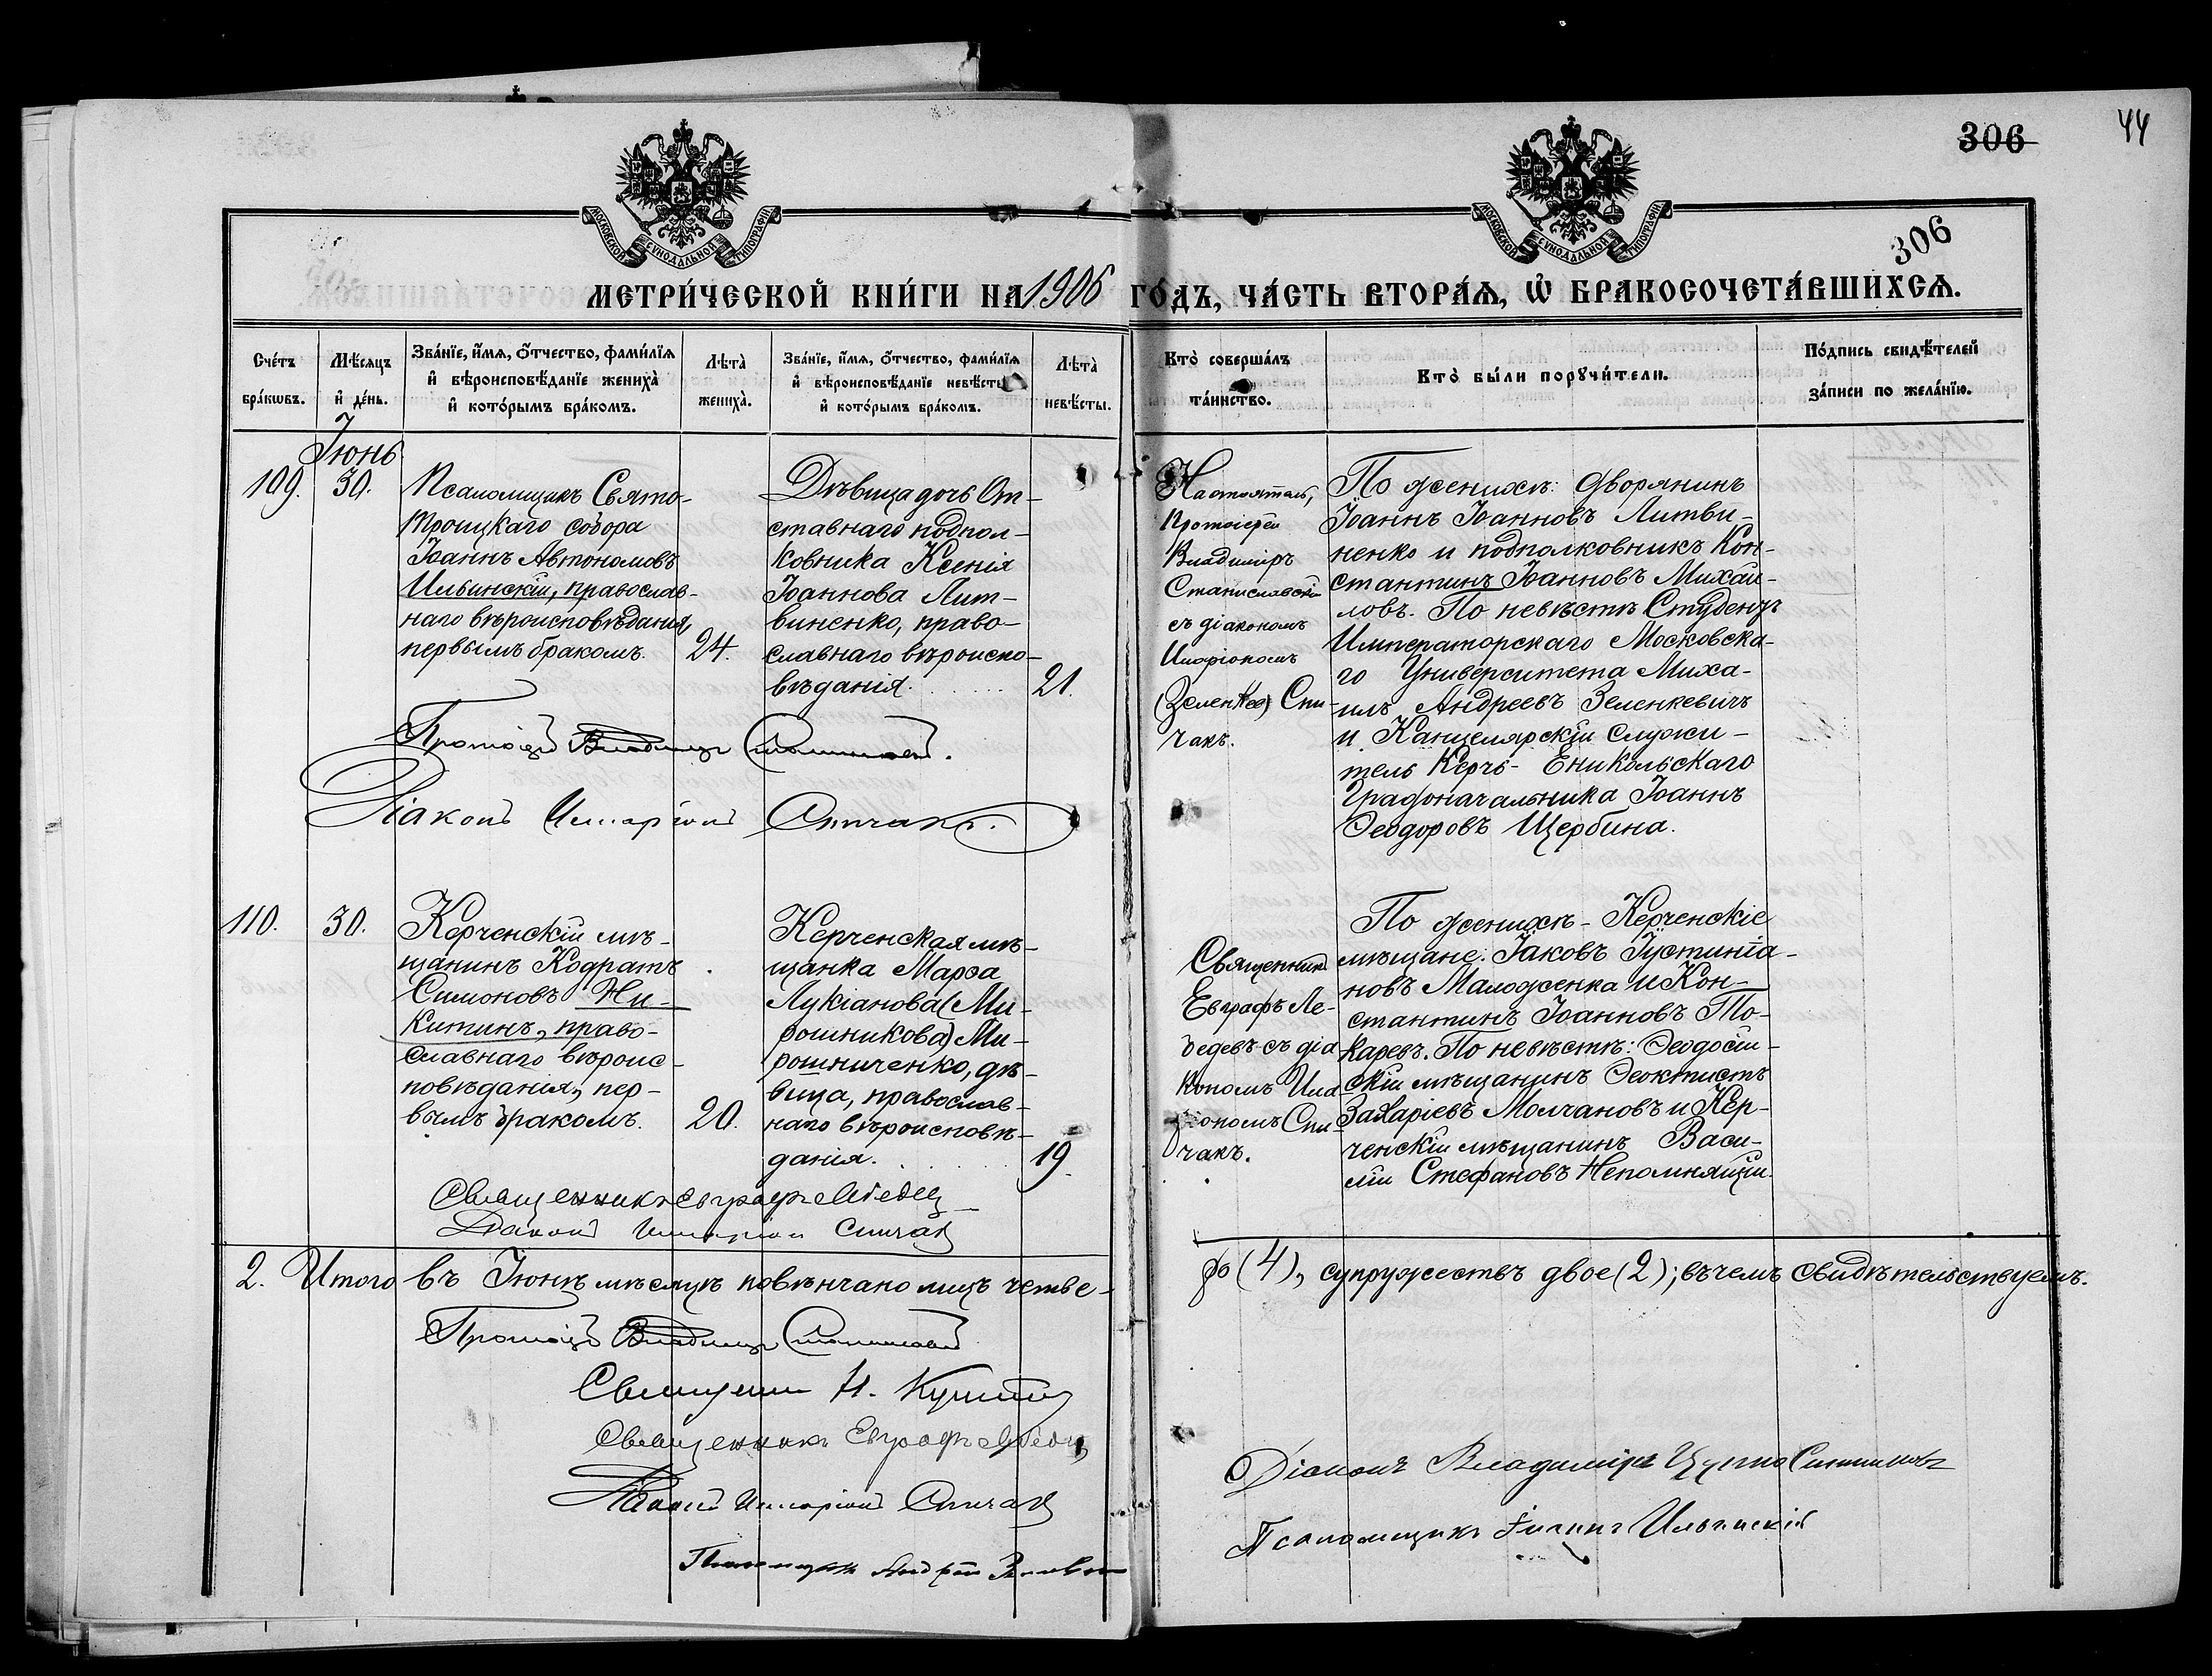 306
44
306
МОСКОВСКОЙ СѴНОДАЛЬНОЙ ТИПОГРАФІИ
МОСКОВСКОЙ СѴНОДАЛЬНОЙ ТИПОГРАФІИ
МЕТРИ́ЧЕСКОЙ КНИ́ГИ НА 1906 ГО́ДЪ, ЧА́СТЬ ВТОРА́Ѧ, Ѽ БРАКОСОЧЕТА́ВШИХСѦ.
Сче́тъ
бра́кѡвъ.
Мѣ́сяцъ
и҆ де́нь.
Зва́нїе, и҆́мѧ, ѻ҆́тчество, фами́лїѧ
и҆ вѣроисповѣ́данїе жениха̀
и҆ кото́рымъ бра́комъ.
Лѣта̀
жениха̀.
Зва́нїе, и҆́мѧ, ѻ҆́тчество, фами́лїѧ
и҆ вѣроисповѣ́данїе невѣ́сты
и҆ кото́рымъ бра́комъ.
Лѣта̀
невѣ́сты.
Кто̀ соверша́лъ
та́инство.
Кто̀ бы́ли порꙋчи́тели.
По́дпись свидѣ́телей
за́писи по жела́нїю.
Іюнь
109.
30.
Псаломщикъ Свято-
Троицкаго собора
Іоаннъ Автономовъ
Ильинскій, православ-
наго вѣроисповѣданія,
первымъ бракомъ.
24.
Дѣвица дочь От-
ставнаго подпол-
ковника Ксенія
Іоаннова Лит-
виненко, право-
славнаго вѣроиспо-
вѣданія.
21.
Настоятель,
Протоіерей
Владиміръ
Станиславскій
съ діакономъ
Иларіономъ
(Зеленкев) Спи-
чакъ.
По женихѣ: дворянинъ
Іоаннъ Іоанновъ Литви-
ненко и подполковникъ Кон-
стантинъ Іоанновъ Михай-
ловъ. По невѣстѣ Студентъ
Императорскаго Московска-
го Университета Миха-
илъ Андреевъ Зеленкевичъ
и Канцелярскій служи-
тель Керчь-Еникольскаго
Градоначальника Іоаннъ
Ѳеодоровъ Щербина.
Протоіерей Владиміръ Станиславскій.
Діаконъ Иларіонъ Спичакъ.
110.
30.
Керченскій мѣ-
щанинъ Кодратъ
Симоновъ Ни-
китинъ, право-
славнаго вѣроис-
повѣданія, пер-
вымъ бракомъ.
20.
Керченская мѣ-
щанка Марѳа
Лукіанова (Ми-
рошникова) Ми-
рошниченко, дѣ-
вица, православ-
наго вѣроисповѣ-
данія.
19.
Священникъ
Евграфъ Ле-
бедевъ съ діа
кономъ Ила
ріономъ Спи-
чакъ.
По женихѣ - Керченскіе
мѣщане: Іаковъ Іустинїа-
новъ Маложенка и Кон-
стантинъ Іоанновъ То-
каревъ. По невѣстѣ: Ѳеодосій-
скій мѣщанинъ Ѳеоктистъ
Захаріевъ Молчановъ и Кер-
ченскій мѣщанинъ Васи-
лій Стефановъ Непомнящій.
Священникъ Евграфъ Лебедев
Діаконъ Иларіонъ Спичакъ
2. Итого въ Іюнѣ мѣсяцѣ повѣнчано лицъ четве-
ро (4), супружествъ двое (2); въ чемъ свидѣтельствуемъ.
Протоіерей Владиміръ Станиславскій
Священникъ Н.
Священникъ Евграфъ Лебедев
Діаконъ Иларіонъ Спичакъ
Псаломщикъ Андрей
Діаконъ Владиміръ
Псаломщикъ Іоаннъ Ильинскій